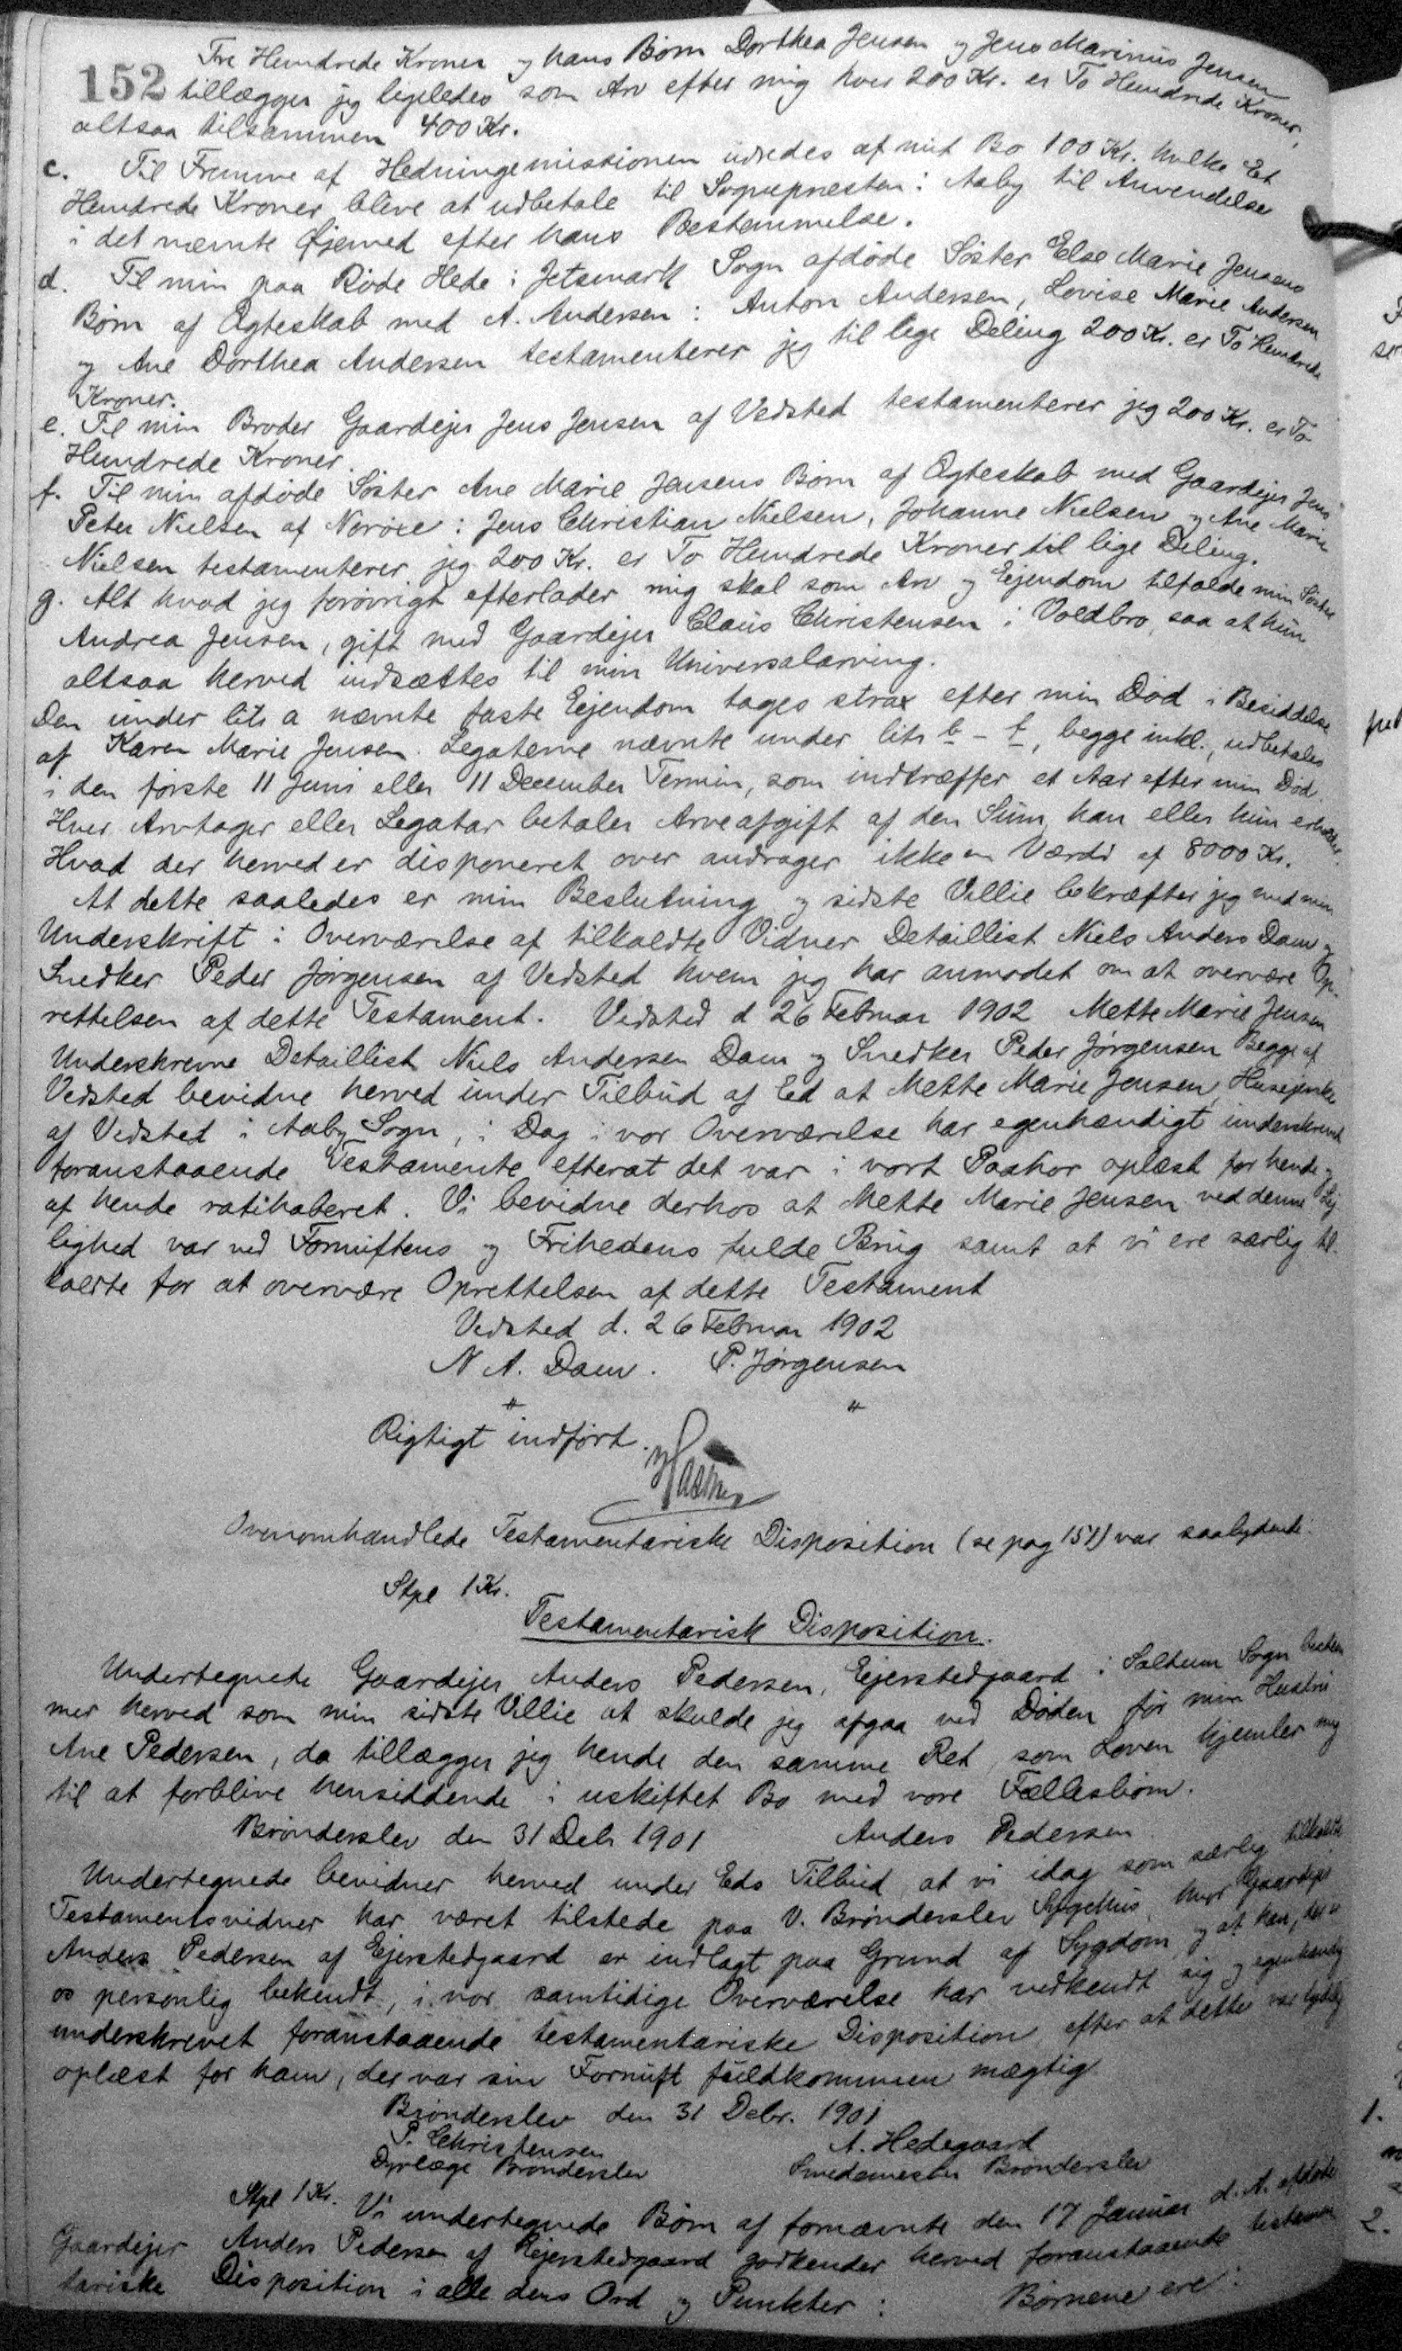 152
Tre Hundrede Kroner og hans Børn Dorthea Jensen og Jens Marinus Jensen
tillægger jeg ligeledes som Arv efter mig hver 200 Kr. er To Hundrede Kroner,
altsaa tilsammen 400 Kr.
c. Til Fremme af Hedningemissionen udredes af mit Bo 100 Kr. hvilke Et
Hundrede Kroner blive at udbetale til Sognepræsten i Aaby til Anvendelse
i det nævnte Øjemed efter hans Bestemmelse.
d. Til min paa Rode Hede i Jetsmark Sogn afdøde Søster Else Marie Jensens
Børn af Ægteskab med A. Andersen: Anton Andersen, Lovise Marie Andersen
og Ane Dorthea Andersen testamenterer jeg til lige Deling 200 Kr. er To Hundrede
Kroner.
e. Til min Broder Gaardejer Jens Jensen af Vedsted testamenterer jeg 200 Kr. er To
Hundrede Kroner.
f. Til min afdøde Søster Ane Marie Jensens Børn af Ægteskab med Gaardejer Jens
Peter Nielsen af Nørøxe: Jens Christian Nielsen, Johanne Nielsen og Ane Marie
Nielsen testamenterer jeg 200 Kr. er To Hundrede Kroner til lige Deling.
g. Alt hvad jeg forøvrigt efterlader mig skal som Arv og Eiendom tilfalde min Søster
Andrea Jensen, gift med Gaardejer Claus Christensen i Voldbro, saa at hun
altsaa herved indsættes til min Universalarving.
Den under litr a nævnte faste Eiendom tages strax efter min Død i Besiddelse
af Karen Marie Jensen. Legaterne nævnte under litr b - f, begge inkl., udbetales
i den første 11 Juni eller 11 December Termin, som indtræffer et Aar efter min Død.
Hver Arvtager eller Legatar betaler Arveafgift af den Sum, han eller hun erholder.
Hvad der herved er disponeret over andrager ikke en Værdi af 8000 Kr.
At dette saaledes er min Beslutning og sidste Villie bekræfter jeg med min
Underskrift i Overværelse af tilkaldte Vidner Detaillist Niels Anders Dam og
Snedker Peder Jørgensen af Vedsted hvem jeg har anmodet om at overvære Op-
rettelsen af dette Testament. Vedsted d 26 Februar 1902 Mette Marie Jensen
Underskrevne Detaillist Niels Andersen Dam og Snedker Peder Jørgensen Begge af
Vedsted bevidne herved under Tilbud af Ed at Mette Marie Jensen, Husejerske
af Vedsted i Aaby Sogn, i Dag i vor Overværelse har egenhændigt underskrevet
foranstaaende Testamente efterat det var i vort Paahør oplæst for hende og
af hende ratihaberet. Vi bevidne derhos at Mette Marie Jensen ved denne Lej
lighed var ved Fornuftens og Frihedens fulde Brug samt at vi ere særlig til-
kaldte for at overvære Oprettelsen af dette Testament
Vedsted d. 26 Februar 1902
N A. Dam. P. Jørgensen
" "
Rigtigt indført.
Ovenomhandlede Testamentariske Disposition (se pag 151) var saalydende:
Stpl 1 Kr.
Testamentarisk Disposition.
Undertegnede Gaardejer Anders Pedersen, Ejerstedgaard i Saltum Sogn bestem
mer herved som min sidste Villie at skulde jeg afgaa ved Døden før min Hustru
Ane Pedersen, da tillægger jeg hende den samme Ret, som Loven hjemler mig
til at forblive hensiddende i uskiftet Bo med vore Fællesbørn.
Brønderslev den 31 Decbr 1901 Anders Pedersen
Undertegnede bevidner herved under Eds Tilbud at vi idag som særlig tilkaldte
Testamentsvidner har været tilstede paa V. Brønderslev Sygehus, hvor Gaardejer
Anders Pedersen af Ejerstedgaard er indlagt paa Grund af Sygdom, og at han, der er
os personlig bekendt, i vor samtidige Overværelse har vedkendt sig og egenhændig
underskrevet foranstaaende testamentariske Disposition efter at dette var tydelig
oplæst for ham, der var sin Fornuft fuldkommen mægtig
Brønderslev den 31 Decbr. 1901
P. Christensen A. Hedegaard
Dyrlæge Brønderslev Smedemester Brønderslev
Stpl 1 Kr. Vi undertegnede Børn af fornævnte den 17 Januar d. A. afdøde
Gaardejer Anders Pedersen af Ejerstedgaard godkender herved foranstaaende testamen
tariske Disposition i alle dens Ord og Punkter: Børnene ere: